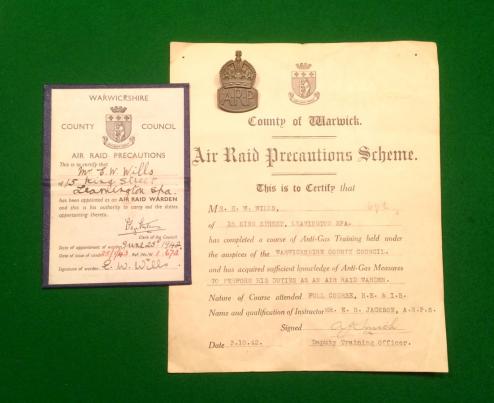 WARWICKSHIRE
COUNTY COUNCIL
AIR RAID PRECAUTIONS
This is to certify that
Mr E. W. Wills
of 15 King Street
Leamington Spa.
has been appointed as an AIR RAID WARDEN
and this is his authority to carry out the duties
appertaining thereto.
Clerk of the Council
Date of appointment of warden June 25th 1942
Date of issue of card Ref. No. W 672
Signature of warden E. W. Wills
ARP
County of Warwick.
Air Raid Precautions Scheme.
This is to Certify that
MR. E. W. WILLS, 672
of 15 KING STREET, LEAMINGTON SPA.
has completed a course of Anti-Gas Training held under
the auspices of the WARWICKSHIRE COUNTY COUNCIL.
and has acquired sufficient knowledge of Anti-Gas Measures
TO PERFORM HIS DUTIES AS AN AIR RAID WARDEN.
Nature of Course attended FULL COURSE, H.E. & I.B.
Name and qualification of Instructor MR. E. D. JACKSON, A.R.P.S.
Signed
Date 2.10.42. Deputy Training Officer.